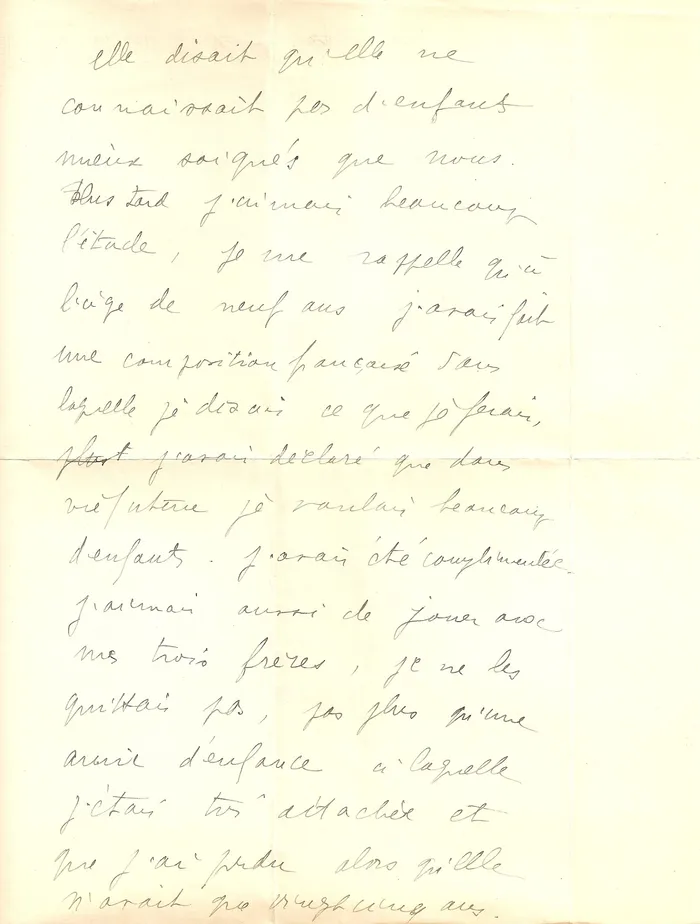 elle disait qu'elle ne
connaissait pas d'enfants
mieux soignés que nous.
Plus tard j'aimais beaucoup
l'étude, je me rappelle qu'à
l'âge de neuf ans j'avais fait
une composition française dans
laquelle je disais ce que je ferais,
j'avais déclaré que dans
vie future je voulais beaucoup
d'enfants. j'avais été complimentée.
j'aimais aussi de jouer avec
mes trois frères, je ne les
quittais pas, pas plus qu'une
amie d'enfance à laquelle
j'étais très attachée et
que j'ai perdu alors qu'elle
n'avait que vingt cinq ans.